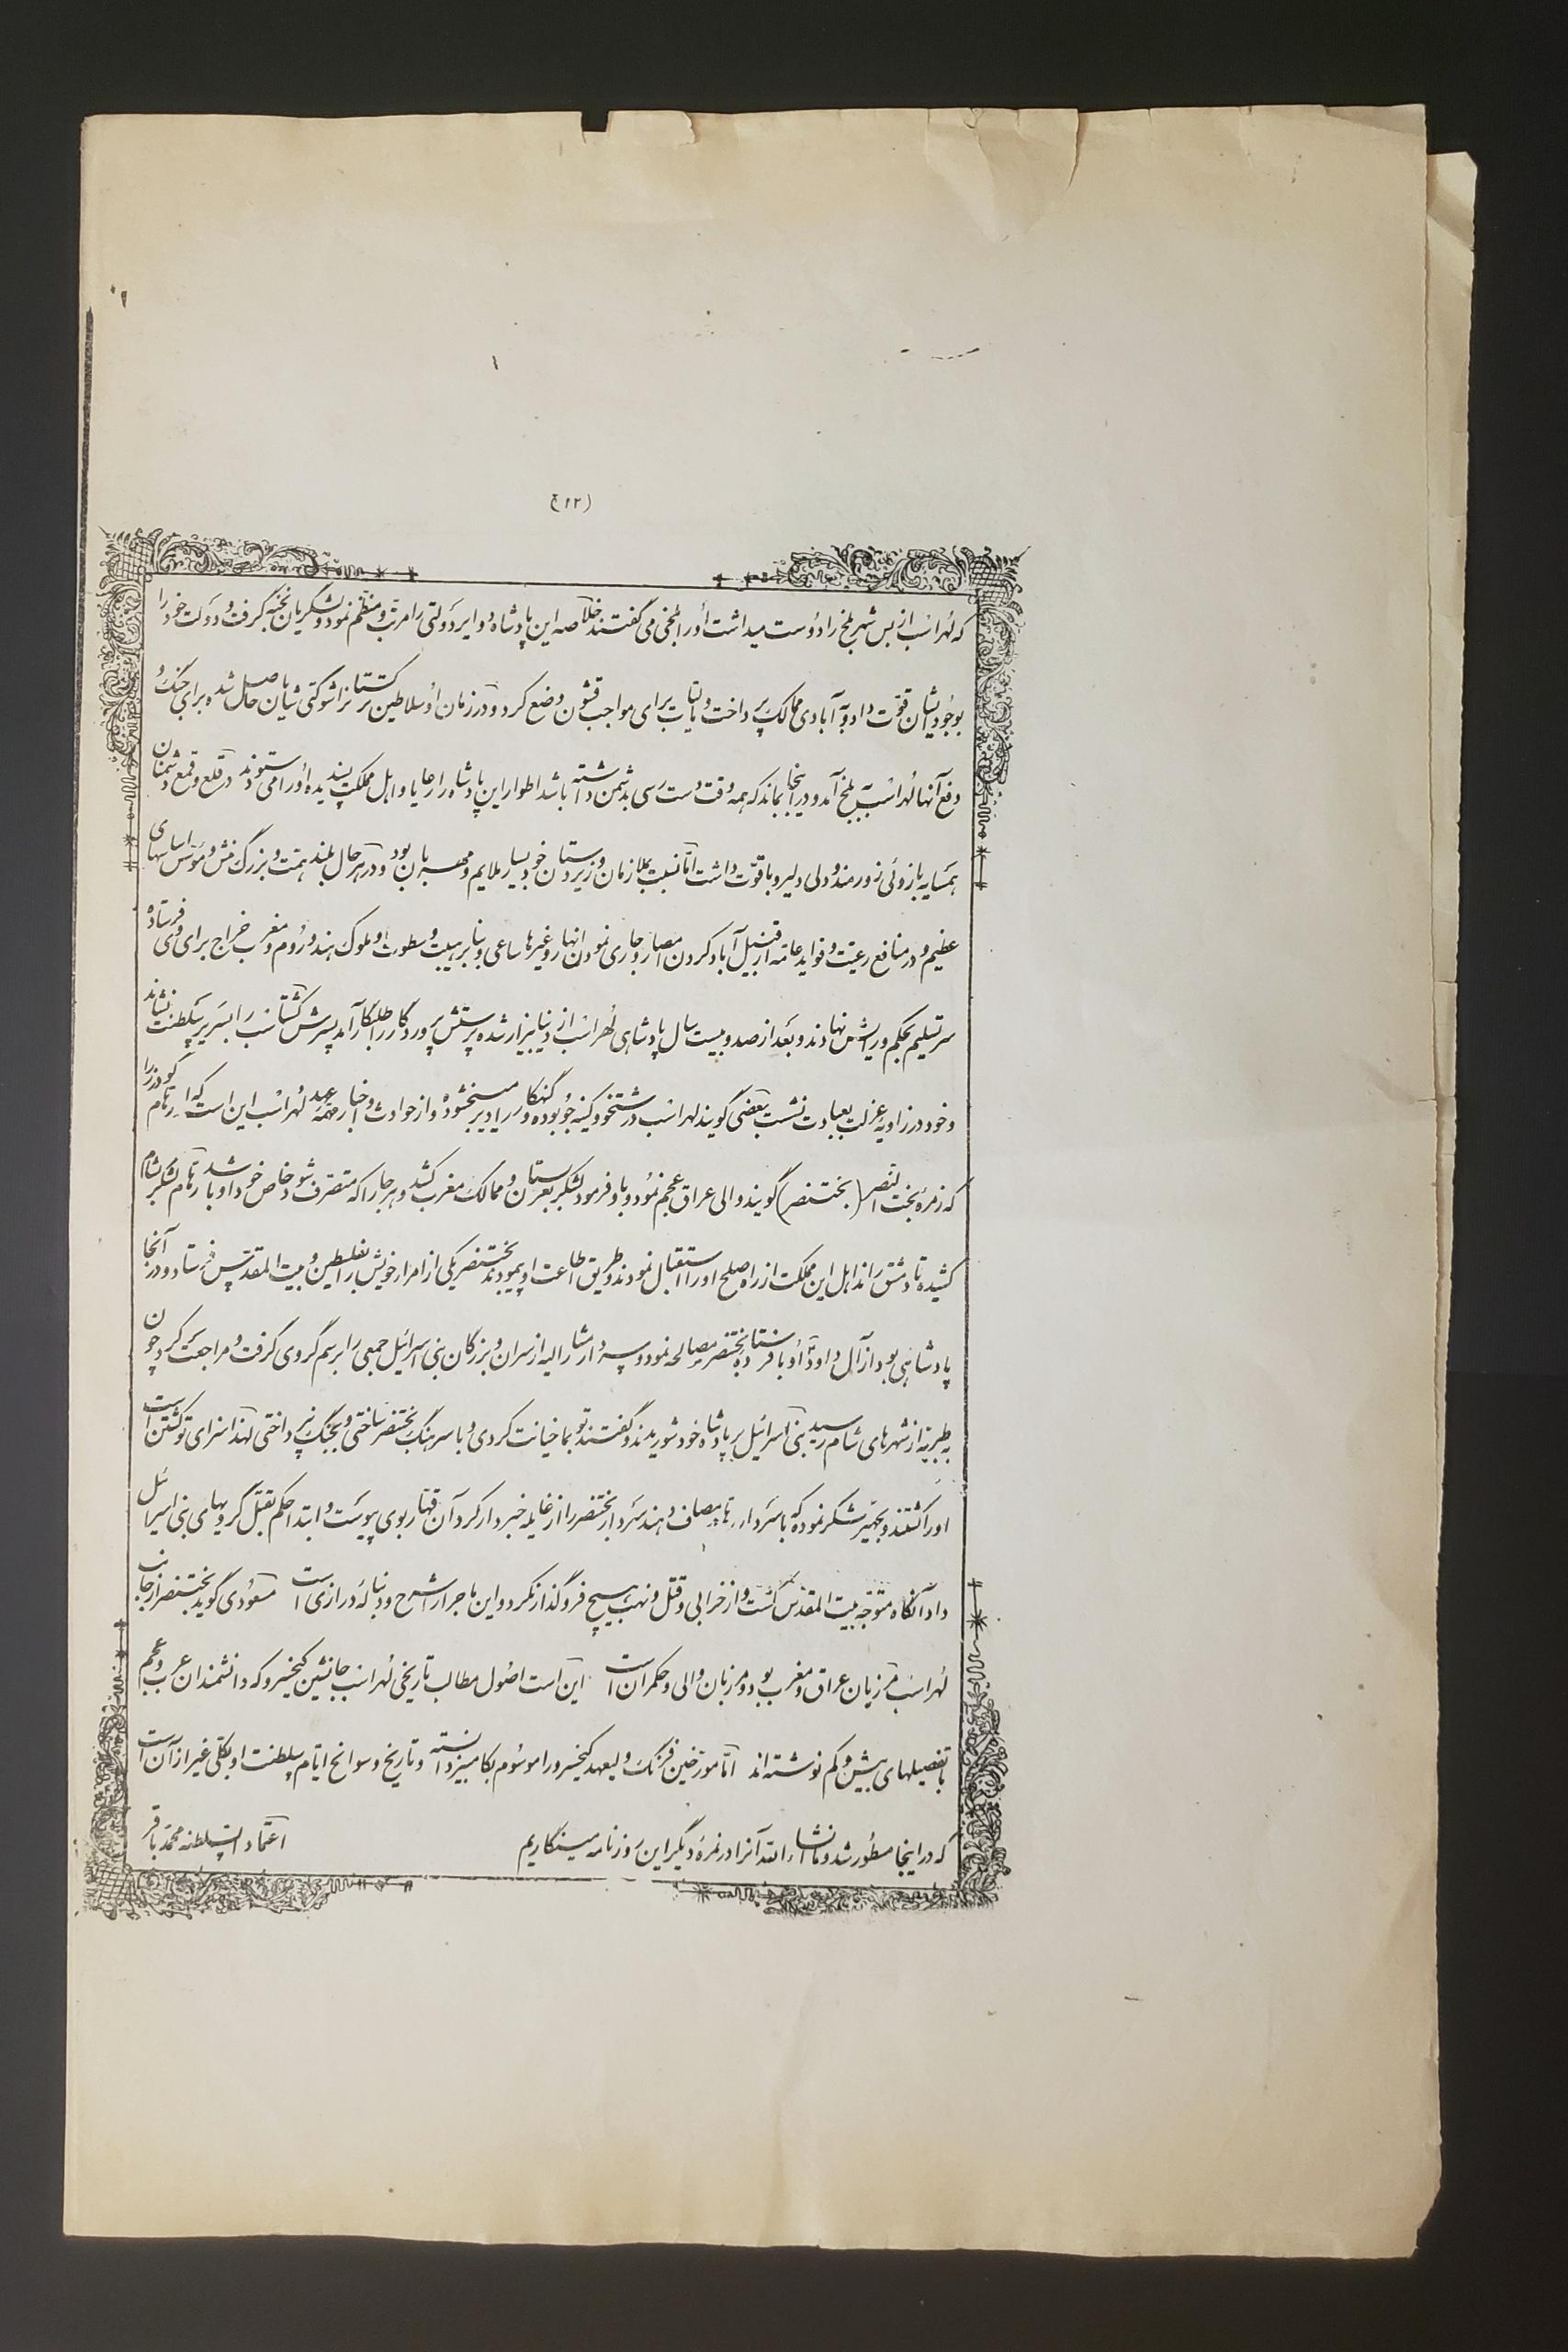 (١٢)
که لهراسب از بس شهر بلخ را دوست میداشت او را بلخی می گفتند خلاصه این پادشاه دوایر دولتی را مرتب و منظم نمود و لشکریان نخبه گرفت و دولت خود را
بوجود ایشان قوت داد و به آبادی ممالک پرداخت و مالیات برای مواجب قشون وضع کرد و در زمان او سلاطین ترکستان را شوکتی شایان حاصل شده برای جنگ و
دفع آنها لهراسب به بلخ آمد و در اینجا بماند که همه وقت دست رسی بدشمن داشته باشد اطوار این پادشاه را رعایا و اهل مملکت پسندیده او را می ستودند در قلع و قمع دشمنان
همسایه بازوئی زورمند و دلی دلیر و با قوت داشت اما نسبت بملازمان و زیردستان خود بسیار ملایم و مهربان بود و در هر حال بلند همت و بزرگ منش و مؤسس اساسهای
عظیم و در منافع رعیت و فواید عامه از قبیل آباد کردن امصار و جاری نمودن انهار و غیرها ساعی و بنا بر هیبت و سطوت او ملوک هند و روم و مغرب خراج برای وی فرستاده
سر تسلیم بحکم و رایش نهادند و بعد از صد و بیست سال پادشاهی لهراسب از دنیا بیزار شده پرستش پروردگار را طلبکار آمد پسرش گشتاسب را بسریر سلطنت نشاند
و خود در زاویه عزلت بعبادت نشست بعضی گویند لهراسب درشتخو و کینه جو بوده و گنهکار را دیر میبخشوده و از حوادث و اخبار مهمه عهد لهراسب این است که رهام گودرز را
که زمره بخت النصر (بختنصر) گویند والی عراق عجم نمود و باو فرمود لشکر بعربستان و ممالک مغرب کشد و هر جا را که متصرف شود خاص خود او باشد رهام لشکر بشام
کشیده تا دمشق راند اهل این مملکت از راه صلح او را استقبال نمودند و طریق اطاعت او پیمودند بختنصر یکی از امراء خویش را بفلسطین و بیت المقدس فرستاد و در آنجا
پادشاهی بود از آل داود او با فرستاده بختنصر مصالحه نمود و سردار مشار الیه از سران و بزرگان بنی اسرائیل جمعی را برسم گروی گرفت و مراجعت کرد چون
به طبریه از شهرهای شام رسید بنی اسرائیل بر پادشاه خود شوریدند و گفتند تو بما خیانت کردی و با سرهنگ بختنصر ساختی و بجنگ نپرداختی لهذا سزای تو کشتن است
او را کشتند و تجهیز لشکر نموده که با سردار رهام مصاف دهند سردار بختنصر را از غایله خبردار کرد آن قهار بوی پیوست و ابتدا حکم بقتل گرویهای بنی اسرائیل
داد آنگاه متوجه بیت المقدس گشت و از خرابی و قتل و نهب هیچ فروگذار نکرد و این ماجرا را شرح و دنباله درازی است مسعودی گوید بختنصر از جانب
لهراسب مرزبان عراق و مغرب بود و مرزبان والی و حکمران است این است اصول مطالب تاریخی لهراسب جانشین کیخسرو که دانشمندان عرب و عجم
با تفصیلهای بیش و کم نوشته اند اما مورخین فرنگ ولیعهد کیخسرو را موسوم بکامبیز دانسته و تاریخ و سوانح ایام سلطنت او بکلی غیر از آن است
که در اینجا مسطور شد و ما انشاء الله آنرا در نمره دیگر این روزنامه مینگاریم اعتماد السلطنه محمد باقر